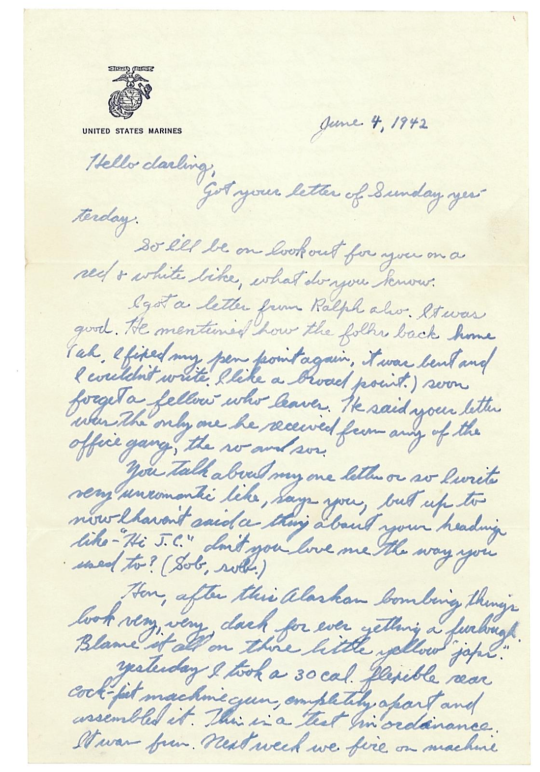 UNITED STATES MARINES
June 4, 1942
Hello darling,
Got your letter of Sunday yes-
terday.
So I'll be on lookout for you on a
red & white bike, what do you know.
I got a letter from Ralph also. It was
good. He mentioned how the folks back home
(ah, I fixed my pen point again, it was bent and
I couldn't write. I like a broad point.) soon
forget a fellow who leaves. He said your letter
was the only one he received from any of the
office gang, the so and sos.
You talk about my one letter or so I write
very unromantic like, says you, but up to
now I haven't said a thing about your headings
like - "Hi J.C." don't you love me the way you
used to? (Sob, sob.)
Hon, after this Alaskan bombing things
look very, very, dark for ever getting a furlough.
Blame it all on those little yellow "japs."
Yesterday I took a 30 cal. flexible rear
cock-pit machine gun, completely apart and
assembled it. This is a test in ordinance.
It was fun. Next week we fire on machine